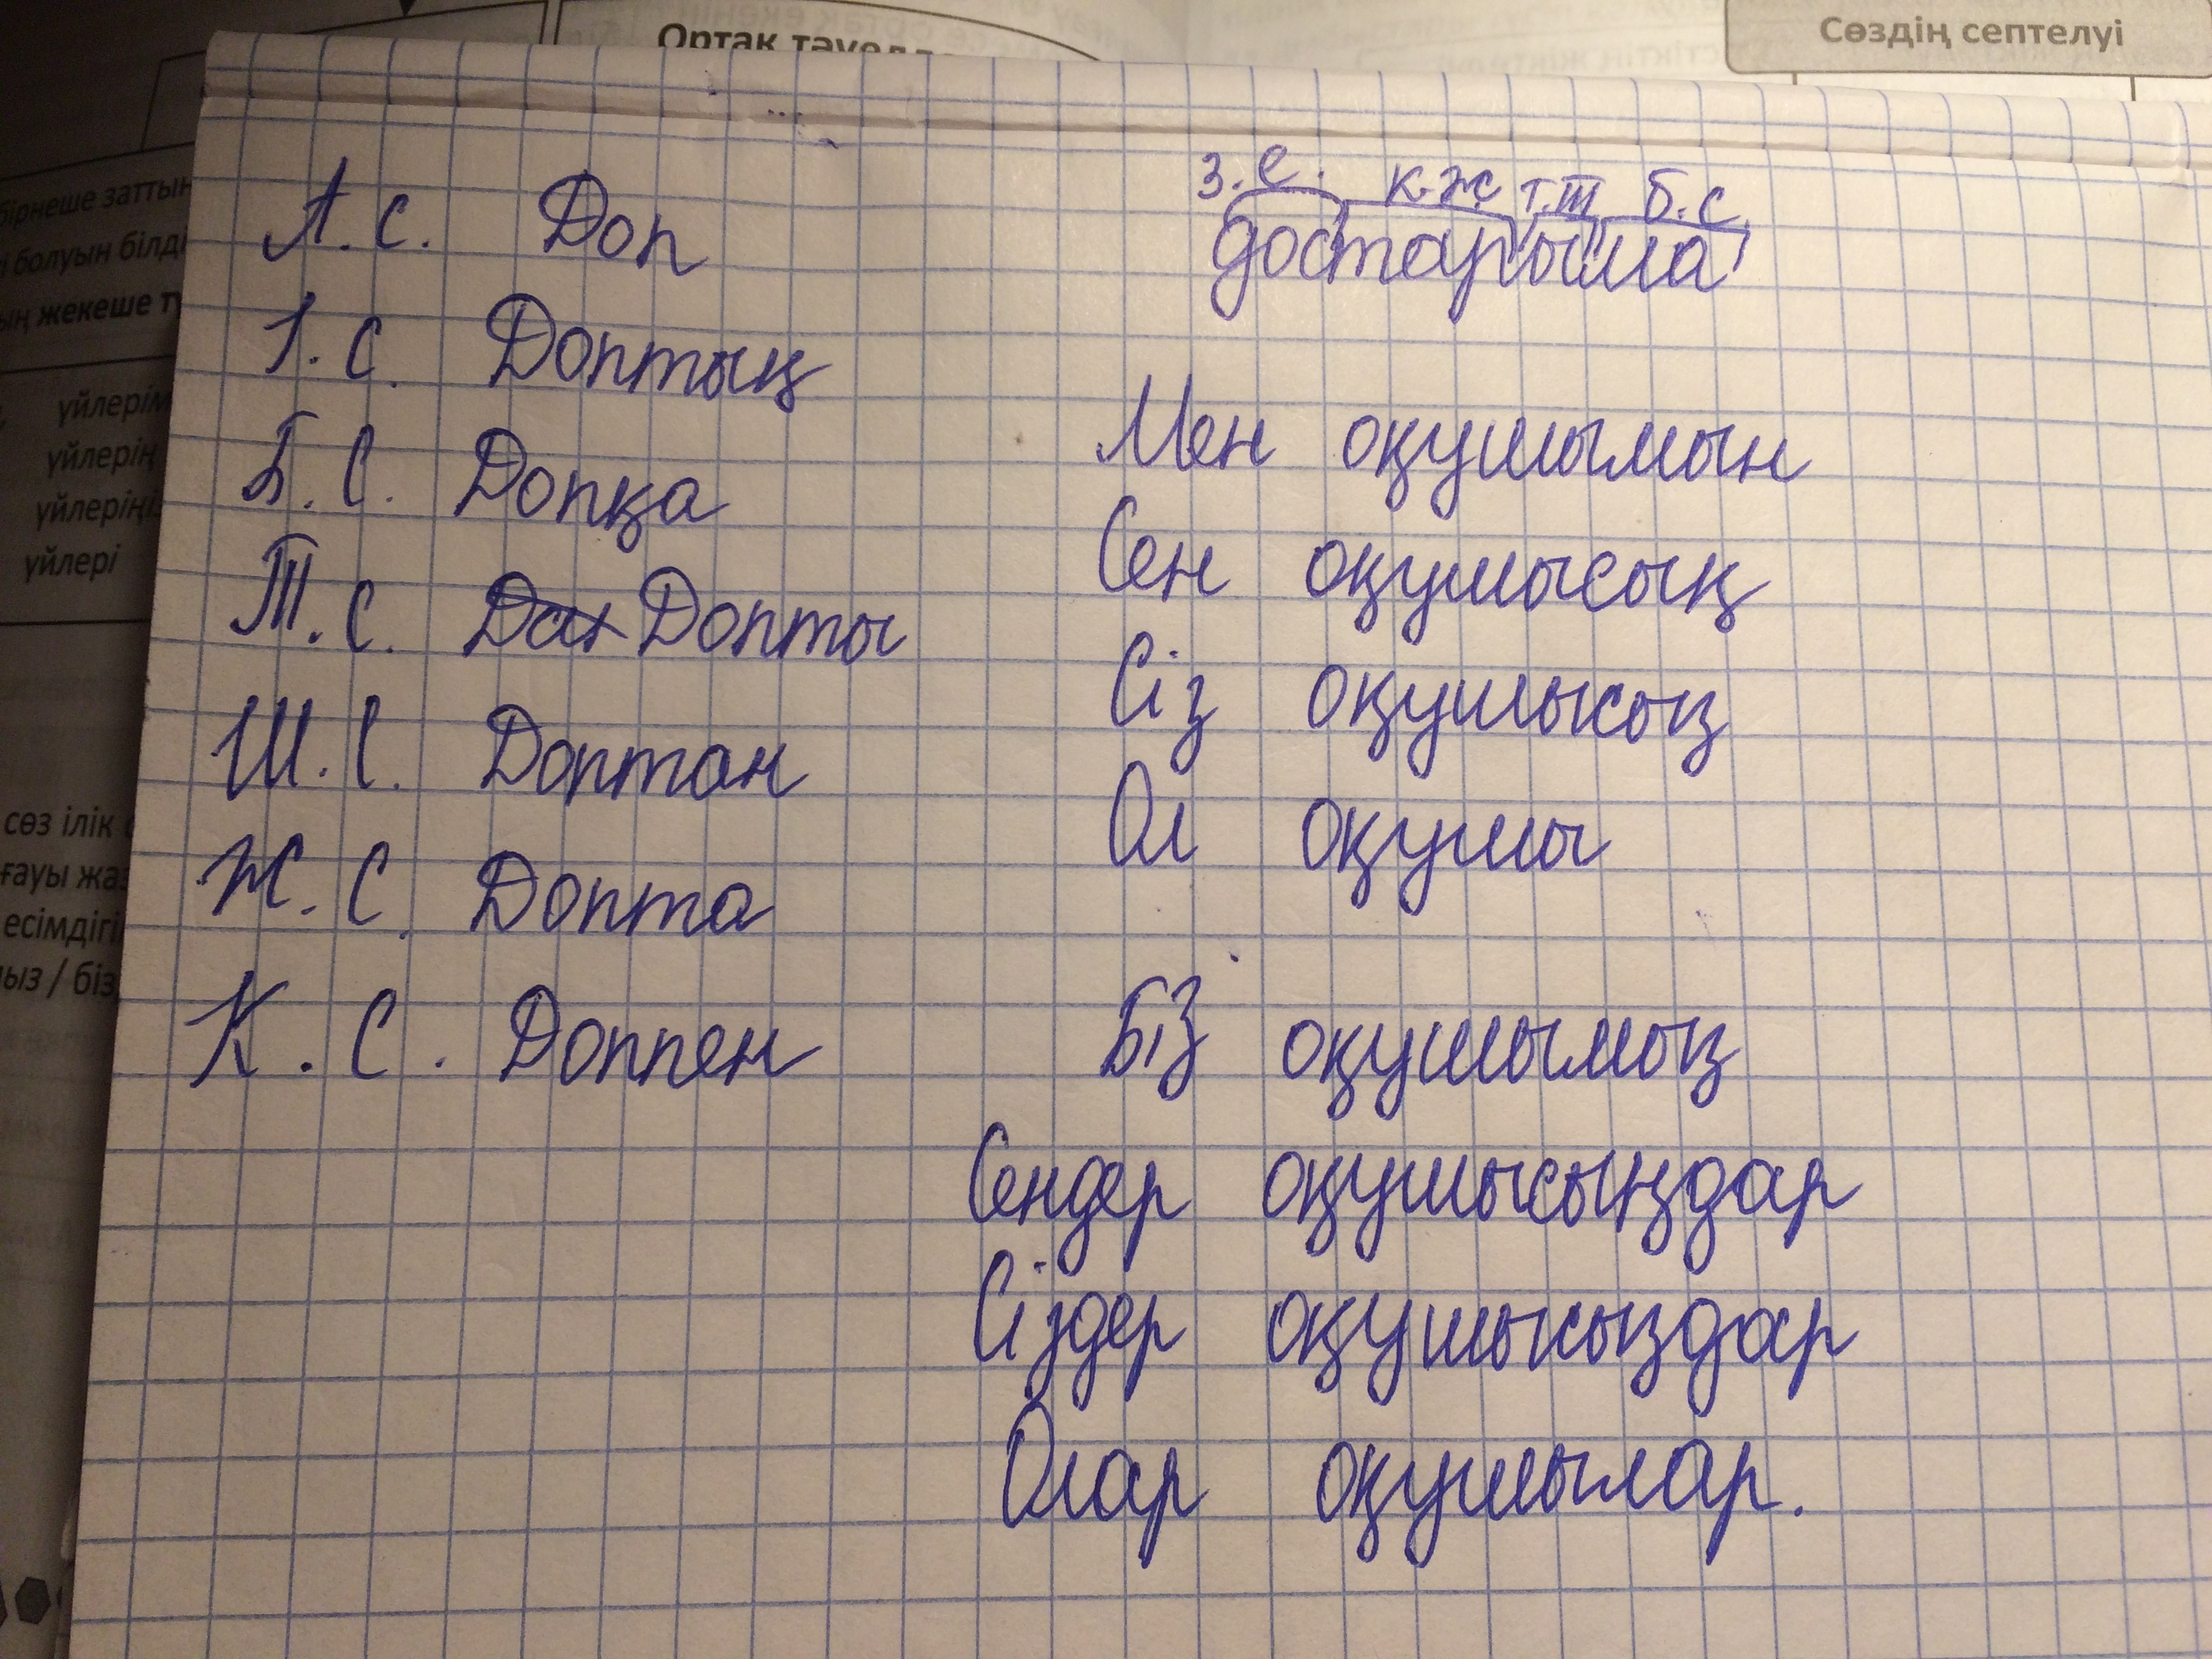 Ортақ
Сөздің септелуі
бірнеше заттың
болуын білді
жекеше
үйлерім
үйлерің
үйлеріңіз
үйлері
сөз ілік
ғауы
есімдігі
ыз / біз
А. с. Доп
І. с. Доптың
Б. с. Допқа
Т. с. Допты
Ш. с. Доптан
Ж. с. Допта
К. с. Доппен
з. е. к.ж т.ж б. с.
достарыма
Мен оқушымын
Сен оқушысың
Сіз оқушысыз
Ол оқушы
Біз оқушымыз
Сендер оқушысыңдар
Сіздер оқушысыздар
Олар оқушылар.